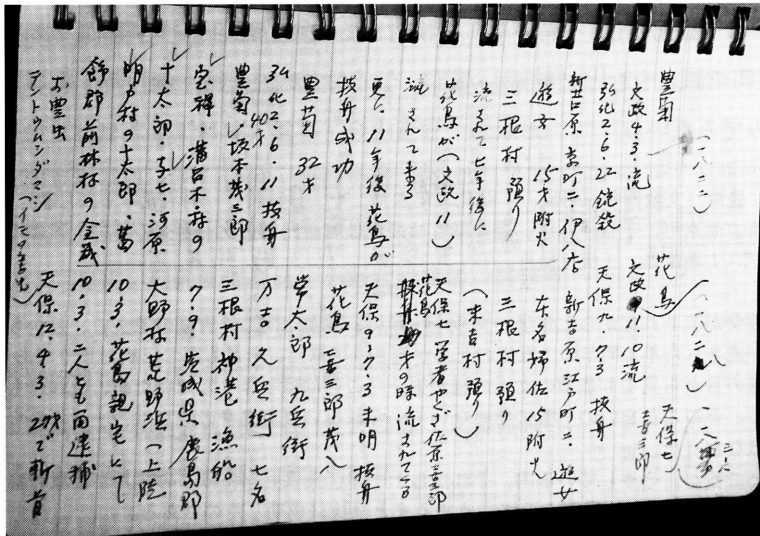 豊菊
(一八二一)
文政4.3.流
弘化2.6.22 銃鉄
新吉原 京町二 伊八店
遊女 15才附火
三根村 預り
流されて七年後に
花鳥が(文政11)
流されて来る
更に11年後 花鳥が
抜舟成功
豊菊 32才
弘化2.6.11 抜舟
40才
豊菊・坂本茂三郎
宝禅・溝呂木村の
十太郎・予七・河原
明戸村の十太郎・葛
飾郡前林村の金蔵
お豊虫
テントウムシダマシ
(イモの害虫)
花鳥
(一八二八)
文政11.10流
天保七 喜三郎
天保九 7.3 抜舟
新吉原江戸町二・遊女
本名 15附火
三根村預り
(末吉村預り)
天保七 学者やくざ 佐原喜三郎
花鳥 才の時流されてくる
天保9.7.3未明 抜舟
花鳥 喜三郎 茂八
常太郎 九兵衛
万吉 久兵衛 七名
三根村神港 漁船
7.9. 茨城県鹿島郡
大野村荒野浜へ上陸
10.3. 花鳥親宅にて
10.3. 二人とも両逮捕
天保12.4.3. 才で斬首